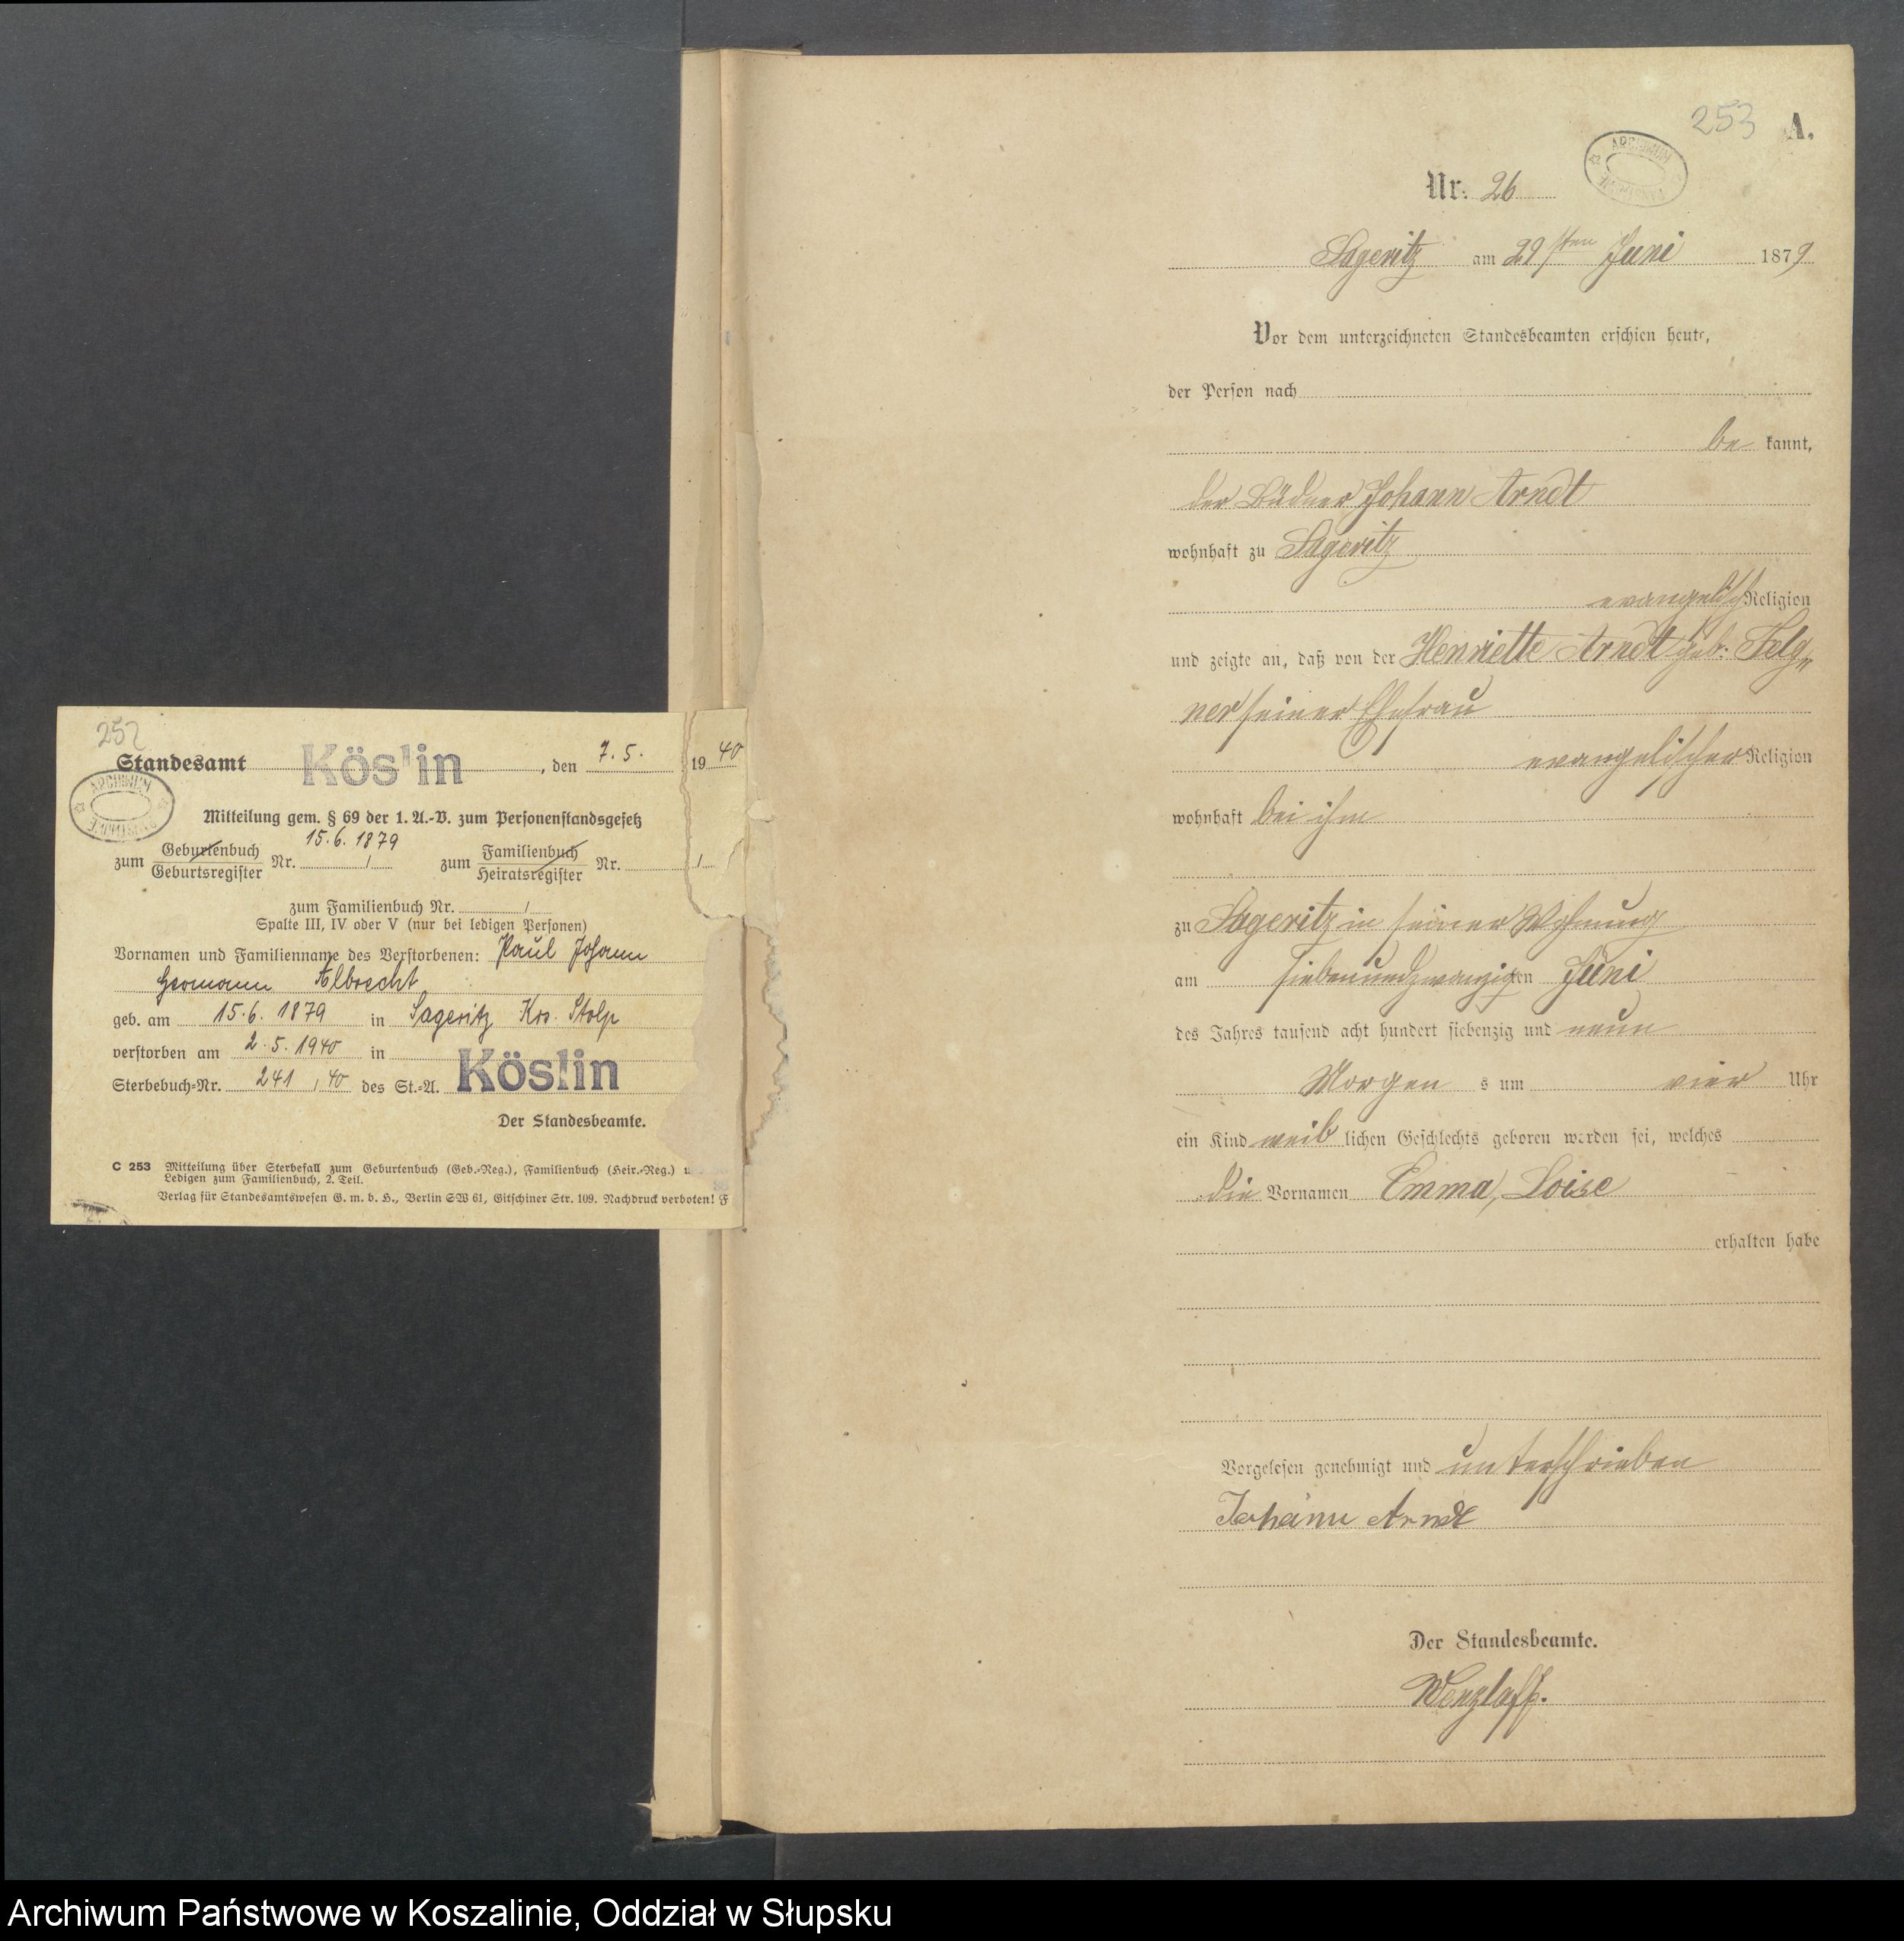 252
Standesamt Köslin, den 7.5. 1940
ARCHIWUM PAŃSTWOWE
Mitteilung gem. § 69 der 1. A.-V. zum Personenstandsgesetz
15.6.1879
zum Geburtenbuch Nr. / zum Familienbuch Nr. /
Geburtsregister Heiratsregister
zum Familienbuch Nr. /
Spalte III, IV oder V (nur bei ledigen Personen)
Vornamen und Familienname des Verstorbenen: Paul Johann
Hermann Albrecht
geb. am 15.6.1879 in Sageritz Krs. Stolp
verstorben am 2.5.1940 in
Sterbebuch-Nr. 241 / 40 des St.-A. Köslin
Der Standesbeamte.
C 253 Mitteilung über Sterbefall zum Geburtenbuch (Geb.-Reg.), Familienbuch (Heir.-Reg.) u
Ledigen zum Familienbuch, 2. Teil.
Verlag für Standesamtswesen G. m. b. H., Berlin SW 61, Gitschiner Str. 109. Nachdruck verboten! F
253 A.
ARCHIWUM PAŃSTWOWE
Nr. 26
Sageritz am 29sten Juni 1879
Vor dem unterzeichneten Standesbeamten erschien heute,
der Person nach
be kannt,
der Büdner Johann Arndt
wohnhaft zu Sageritz
evangelisch Religion
und zeigte an, daß von der Henriette Arndt geb. Felg„
ner seiner Ehefrau
evangelischer Religion
wohnhaft bei ihm
zu Sageritz in seiner Wohnung
am siebenundzwanzigten Juni
des Jahres tausend acht hundert siebenzig und neun
Morgen s um vier Uhr
ein Kind weib lichen Geschlechts geboren worden sei, welches
die Vornamen Emma, Loise
erhalten habe
Vorgelesen genehmigt und unterschrieben
Johann Arndt
Der Standesbeamte.
Wenzlaff.
Archiwum Państwowe w Koszalinie, Oddział w Słupsku